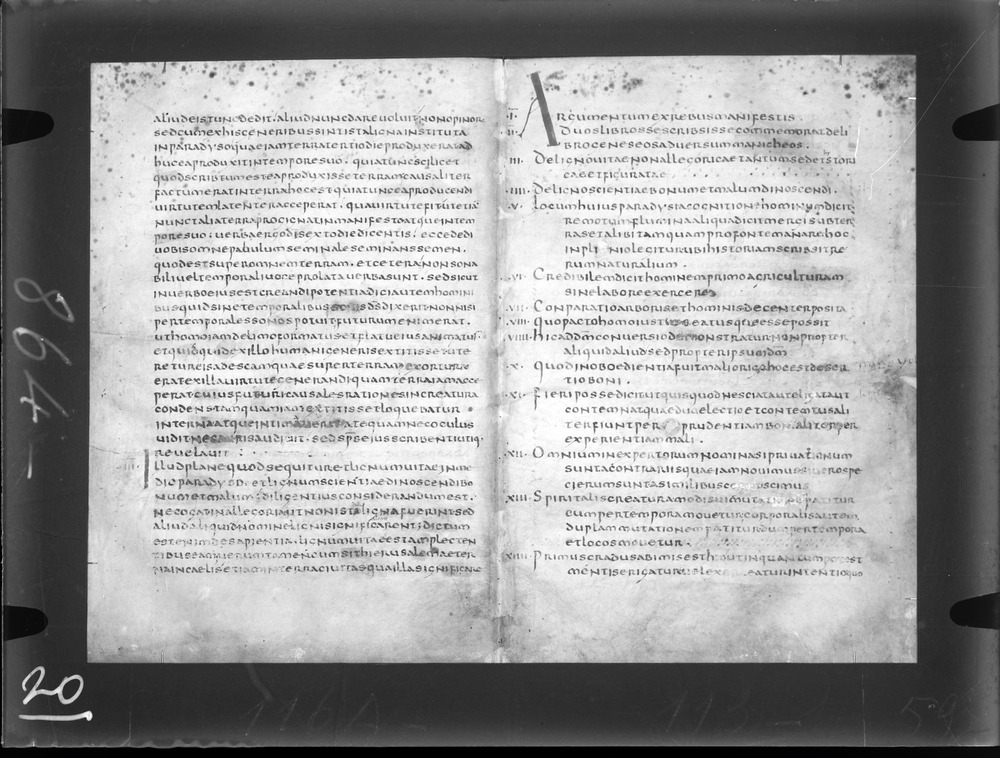 aliudeistuncdedit.aliudnuncdareuoluitnonopinor
sedcumexhisgeneribussintistalignainstituta
inparadysoquaeiamterratertiodieproduxerat.ad
hucea produxitintemporesuo.quiatuncscilicet
quodscribtumesteaproduxisseterramcausaliter
factumeratinterrahocestquiatunceaproducendi
uirtutemlatenteracceperat.quauirtutefitutetiā
nunctaliaterraprocignatinmanifestoatqueintem
poresuo.uerbaergodisextodiedicentis.eccededi
uobisomnepabulumseminaleseminanssemen.
quodestsuperomnemterram.etceteranonsona
biliueltemporaliuoceprolatauerbasunt.sedsicut
inuerboeiusestcreandipotentiadiciautemhomini
busquidsinetemporalibus sonisdsdixeritnonnisi
pertemporalessonospotuitfuturumenimerat.
uthomoiamdelimoformatusetflatueiusanimatus.
etquidquidexillohumanigenerisextitisseute
retureisadescamquaesuperterramexorturae
eratexillauirtutegenerandiquamterraiamacce
peratcuiusfuturicausalesrationesincreatura
condenstamquamiamextitissetloquebatur
internaatqueintimaueritateqamnecoculus
uiditnecaurisaudiuit.sedspseiusscribentiutiq.
reuelauit:
Illudplanequodsequituretlignumuitaeinme
dioparadysi.etlignumscientiaedinoscendibo
numetmalum.diligentiusconsiderandumest.
necogatinallegoriamitnonistalignafuerintsed
aliudaliquidnominelignisignificarent.dictum
estenimdesapientia.lignumuitaeestamplecten
tibuseamuerumtamencumsithierusalemaeter
naincaelisetiaminterraciuitasquaillasignificare
I. Argumentumexrebusmanifestis.
II. Duoslibrossescribsissecommemoratdeli
brogeneseosaduersummanicheos.
III. Delignouitaenonallegoricaetantumsedetistori
caeetfiguratae
IIII. Delignoscientiaebonumetmalumdinoscendi.
V. Locumhuiusparadysiacognitionehominumdicit
remotumfluminaaliquadicitmergisubter
rasetalibitamquamprofontemanarehoc
inplinioleg iturubihistoriamscribsitre
rumnaturalium.
VI. Credibilemdicithominemprimoagriculturam
sinelaboreexerceres
VII. Conparatioarborisethominisdecenterposita
VIII. Quopactohomoiustusetbeatusqueessepossit
VIIII. Hicaddmconuersiodemonstraturnonpropter
aliquidaliudsedpropteripsumdm
X. Quodinoboedientiafuitmaliorigohocestdeser
tioboni.
XI. Fieripossedicitutquisquodnesciatautelicatuut
contemnatquaeduaelectioetcontemtusali
terfiuntperprudentiamboni.aliterper
experientiammali.
XII. Omniuminexpertorumnominasipriuationum
suntacontrariisquaeiamnouimus
XIII. Spiritaliscreaturamodissimutat
cumpertemporamoueturcorporalisautem
duplammutationempatiturdumpertempora
etlocosmouetur.
XIIII. Primusgradusabimisesthoutinquantumpotest
mentiserigatur
120